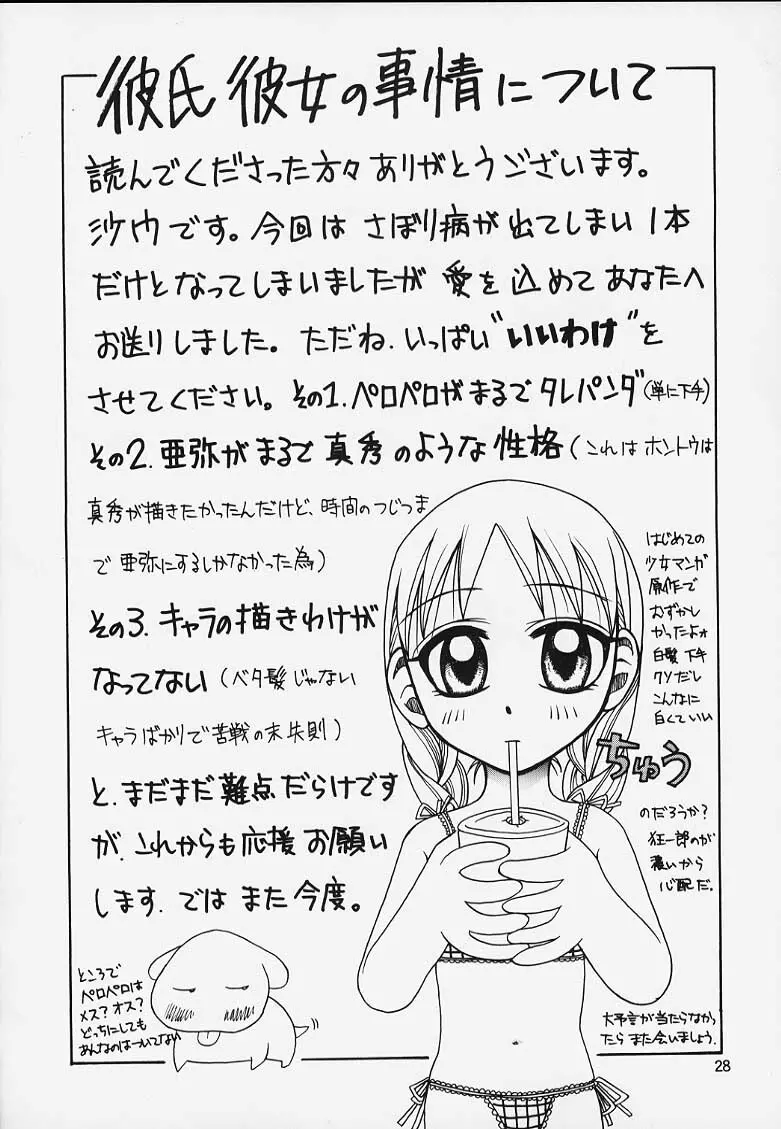 彼氏彼女の事情について
読んでくださった方々ありがとうございます。
沙ウです。今回は さぼり病が出てしまい 1本
だけとなってしまいましたが 愛を込めて あなたへ
お送りしました。ただね、いっぱい"いいわけ"を
させてください。その1.ペロペロがまるでタレパンダ(単に下手)
その2.亜弥がまるで真秀のような性格(これはホントウは
真秀が描きたかったんだけど、時間のつじつま
で亜弥にするしかなかった為)
その3.キャラの描きわけが
なってない(ベタ髪じゃない
キャラばかりで苦戦の末失則)
と、まだまだ難点だらけです
が、これからも応援お願い
します。では また今度。
はじめての
少女マンガ
原作で
むずかし
かったよォ
白髪下手
クソだし
こんなに
白くていい
のだろうか?
狂一郎のが
濃いから
心配だ。
ちゅう
ところで
ペロペロは
メス?オス?
どっちにしても
あんなのはついてない
大予言が当たらなかっ
たら また会いましょう。
28